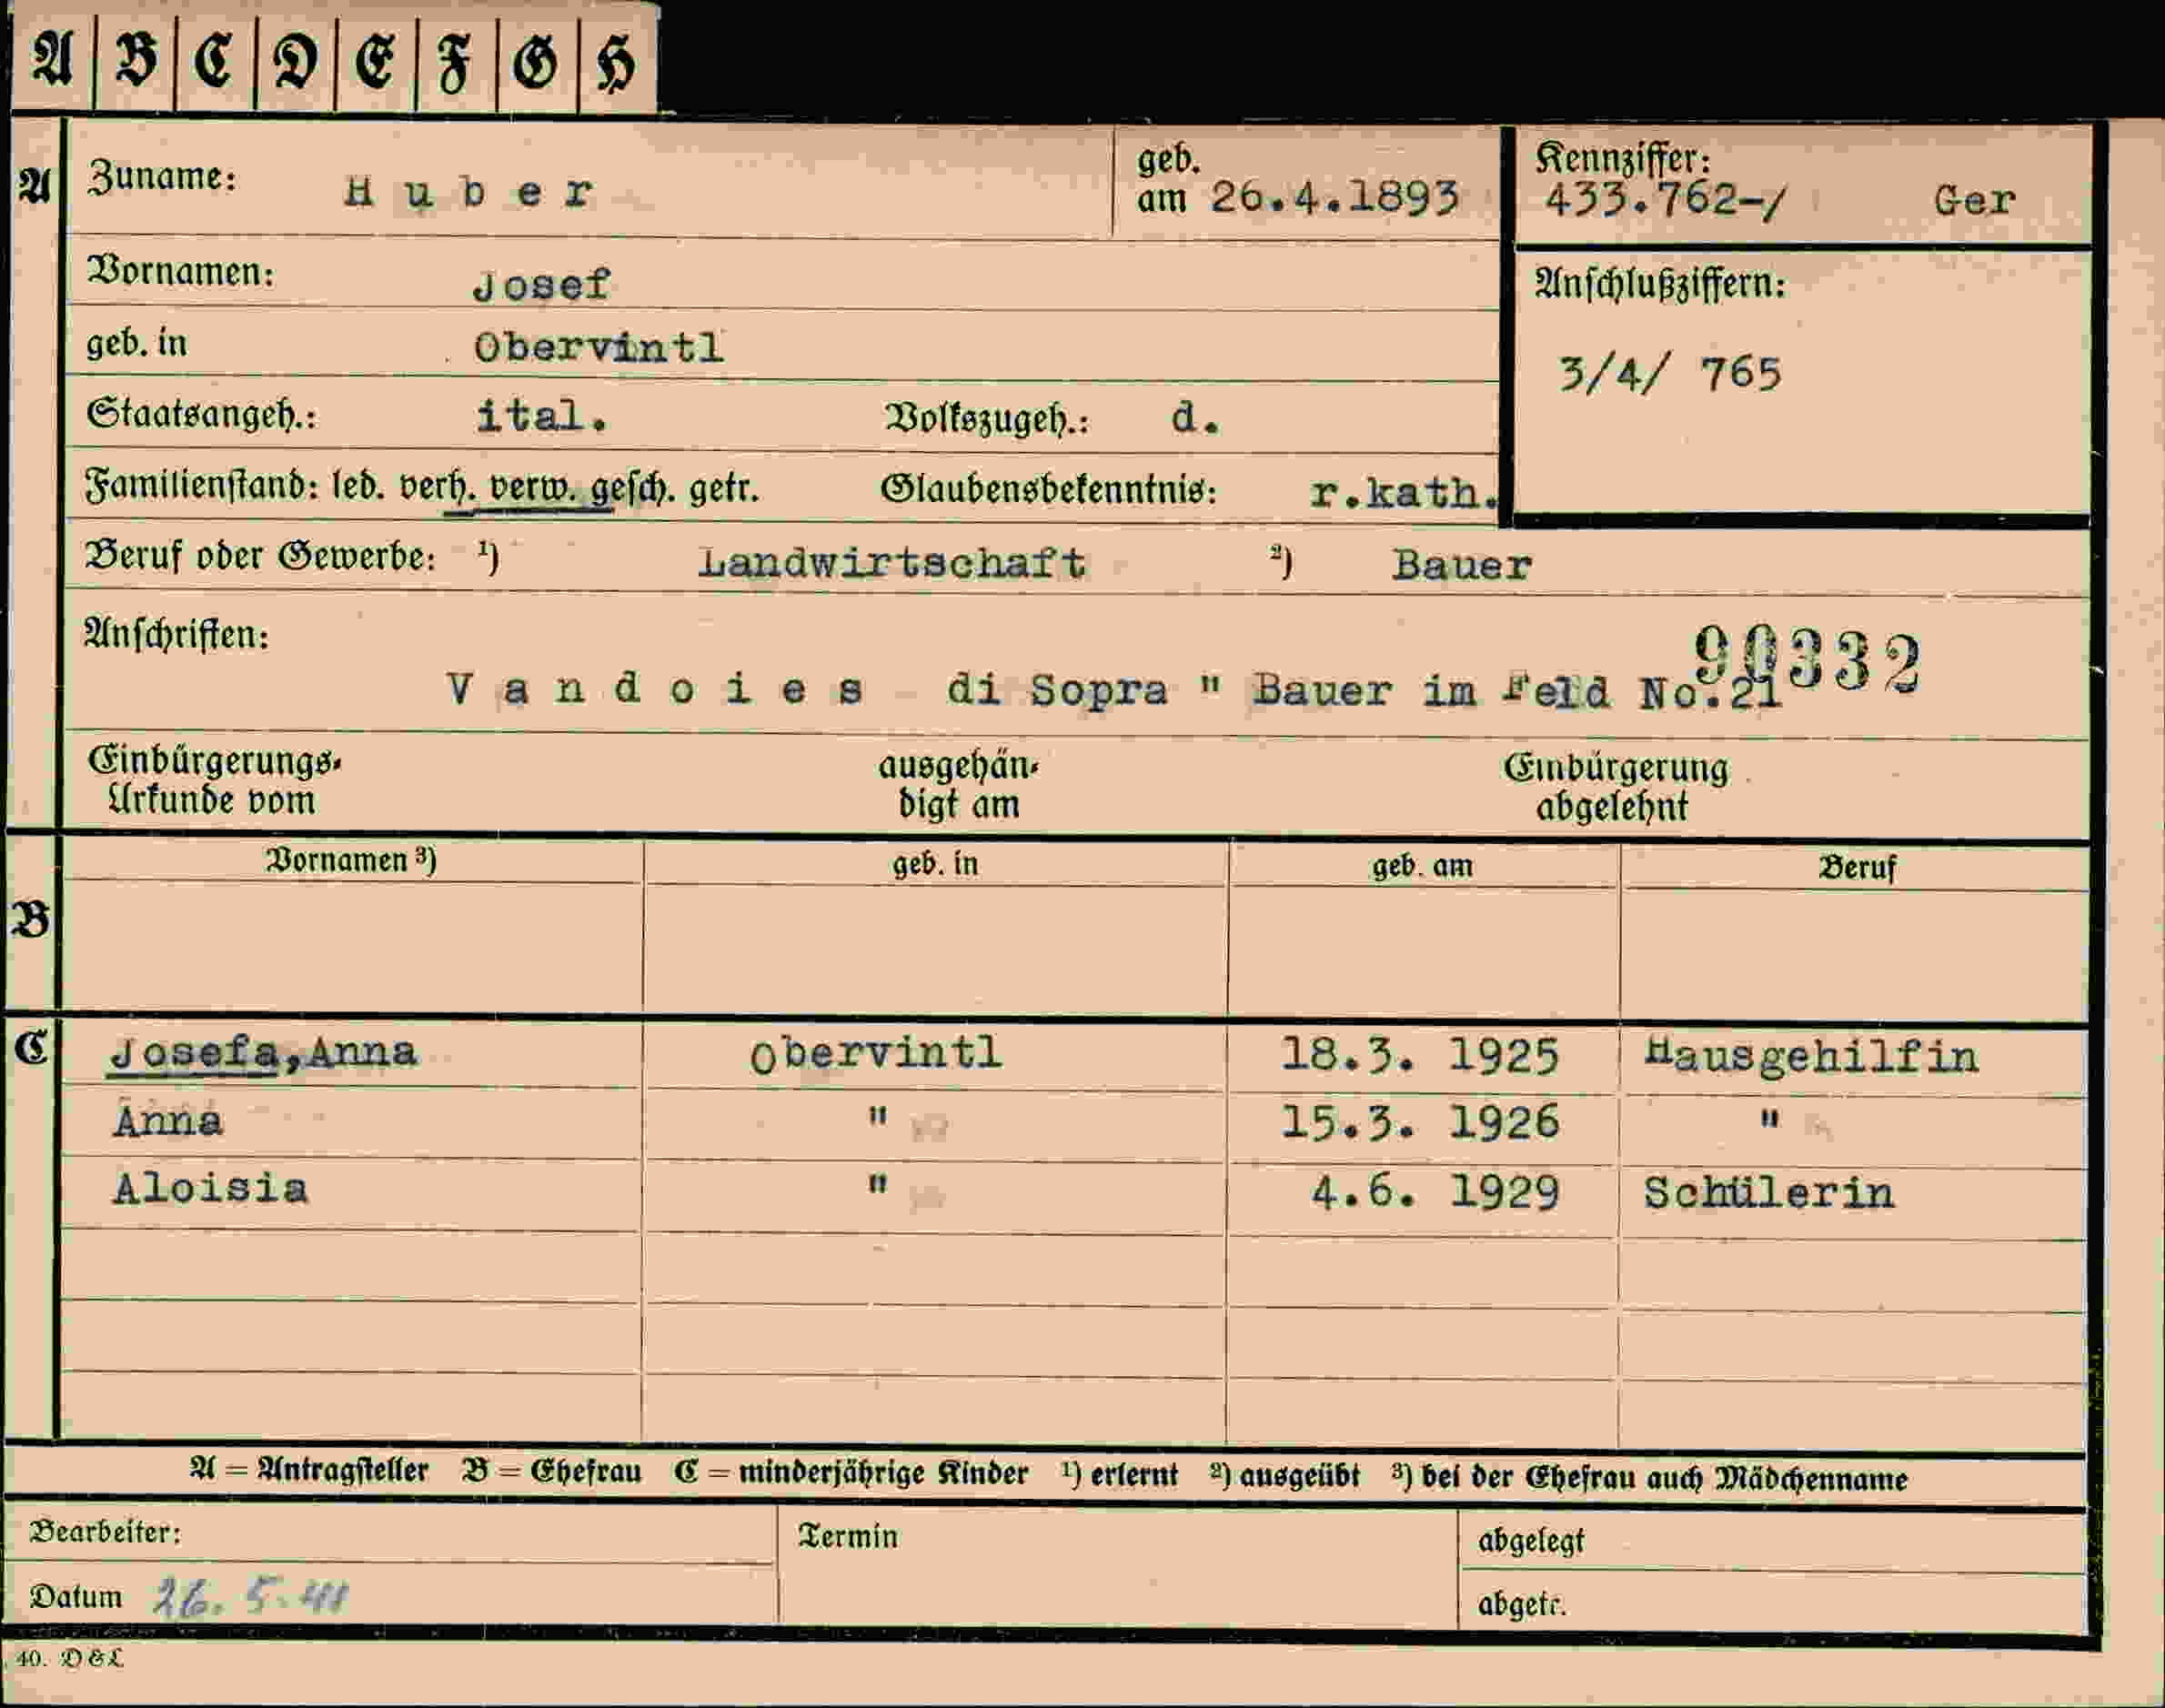 A B C D E F G H
A Zuname: Huber geb. am 26.4.1893 Kennziffer: 433.762-/ Ger
Vornamen: Josef
Anschlußziffern:
geb. in Obervintl
3/4/ 765
Staatsangeh.: ital. Volkszugeh.: d.
Familienstand: led. verh. verw. gesch. getr. Glaubensbekenntnis: r.kath.
Beruf oder Gewerbe: 1) Landwirtschaft 2) Bauer
Anschriften:
90332
Vandoies di Sopra " Bauer im Feld No.21
Einbürgerungs- ausgehän- Einbürgerung
Urkunde vom digt am abgelehnt
Vornamen 3) geb. in geb. am Beruf
B
C Josefa,Anna Obervintl 18.3. 1925 Hausgehilfin
Anna " 15.3. 1926 "
Aloisia " 4.6. 1929 Schülerin
A = Antragsteller B = Ehefrau C = minderjährige Kinder 1) erlernt 2) ausgeübt 3) bei der Ehefrau auch Mädchenname
Bearbeiter: Termin abgelegt
Datum 26. 5. 41 abgetr.
40. D & L